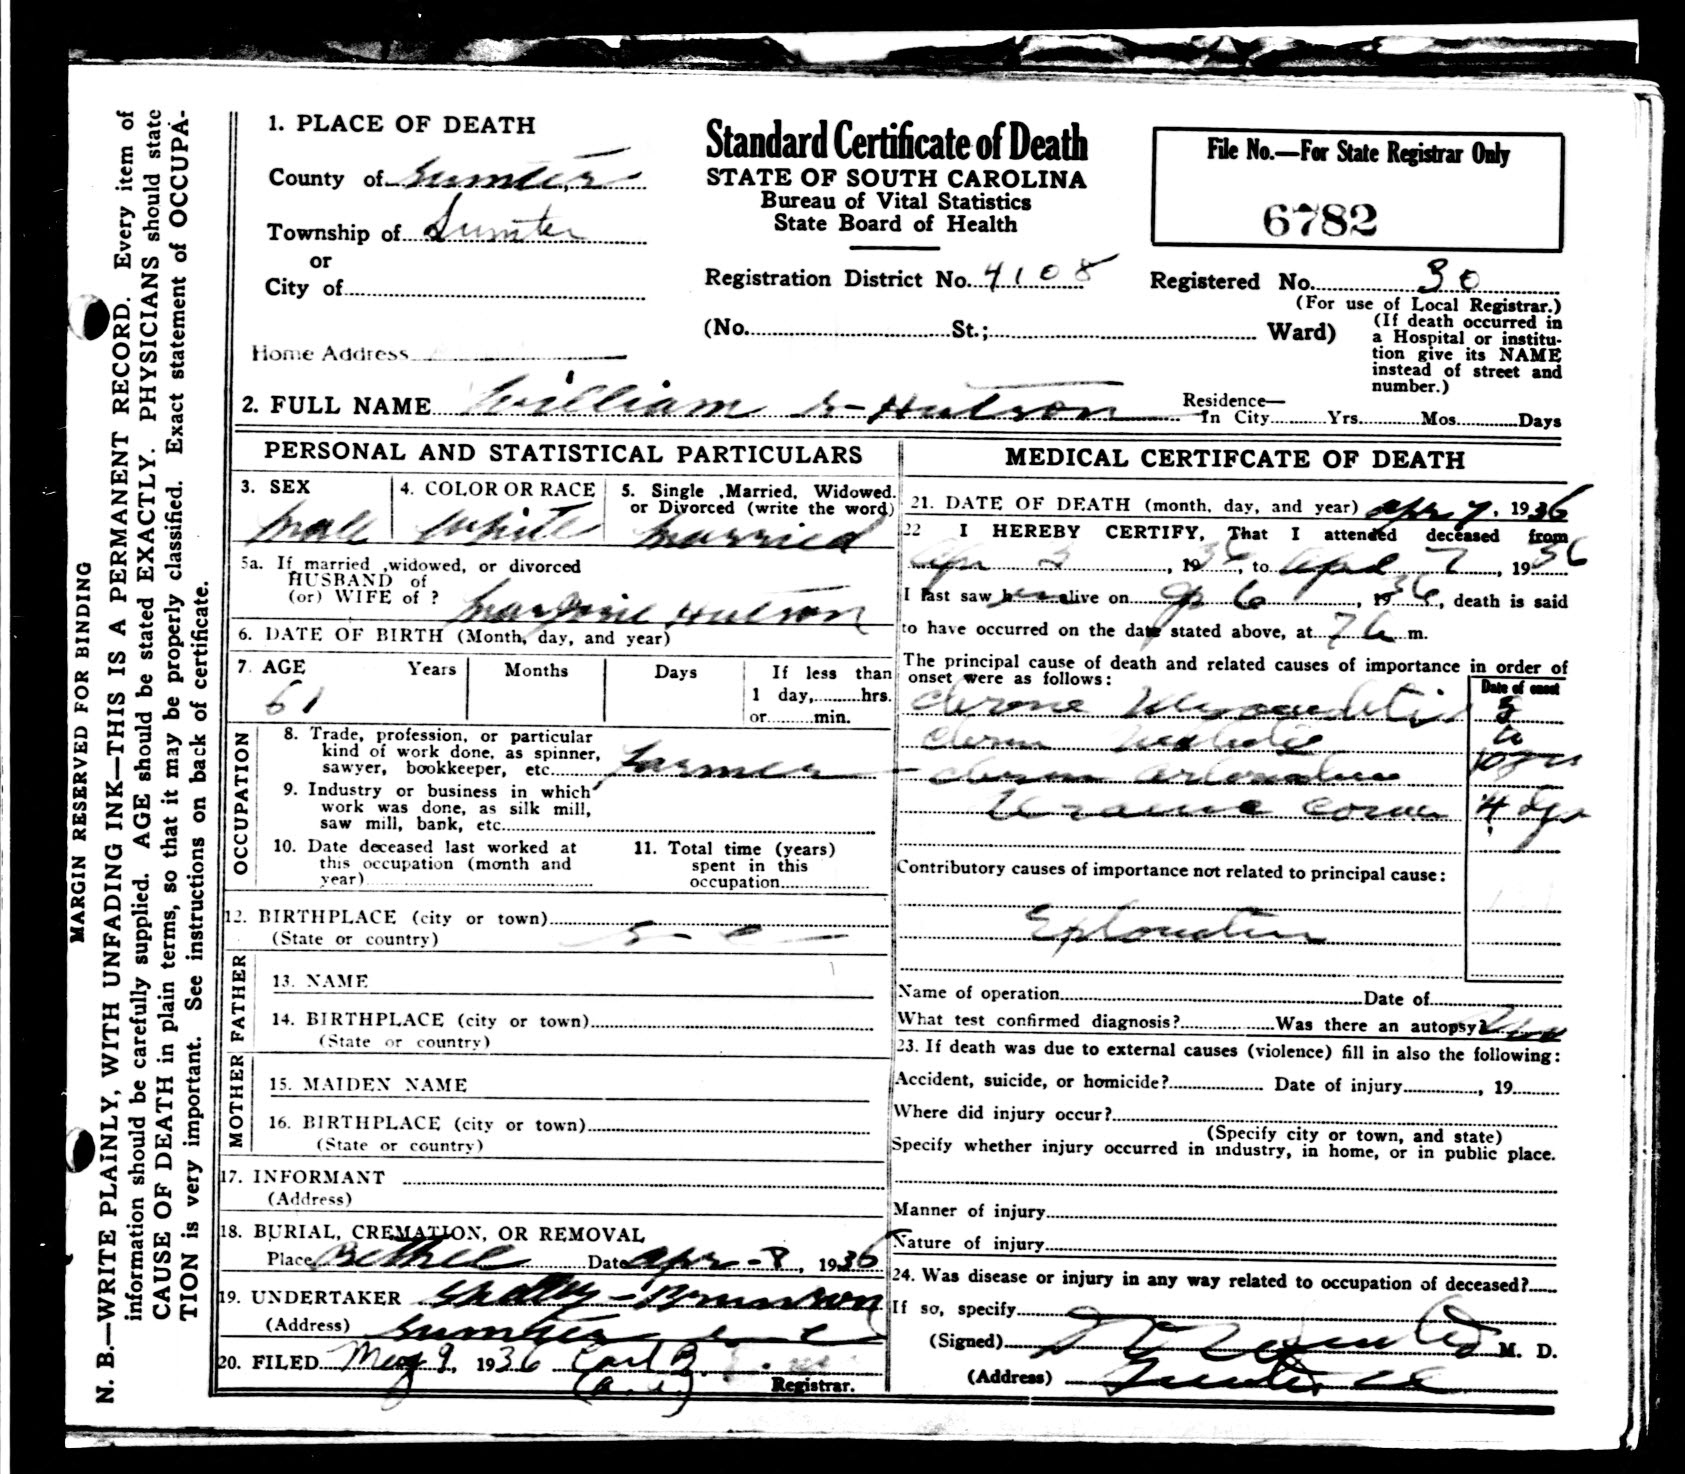 MARGIN RESERVED FOR BINDING
N. B.—WRITE PLAINLY, WITH UNFADING INK—THIS IS A PERMANENT RECORD. Every item of
information should be carefully supplied. AGE should be stated EXACTLY. PHYSICIANS should state
CAUSE OF DEATH in plain terms, so that it may be properly classified. Exact statement of OCCUPA-
TION is very important. See instructions on back of certificate.
1. PLACE OF DEATH
County of Sumter
Township of Sumter
or
City of
Home Address
Standard Certificate of Death
STATE OF SOUTH CAROLINA
Bureau of Vital Statistics
State Board of Health
File No.—For State Registrar Only
6782
Registration District No. 4108
Registered No. 30
(For use of Local Registrar.)
(No. St.; Ward)
(If death occurred in
a Hospital or institu-
tion give its NAME
instead of street and
number.)
2. FULL NAME William S. Hutson
Residence—
In City Yrs. Mos. Days
PERSONAL AND STATISTICAL PARTICULARS
3. SEX
Male
4. COLOR OR RACE
White
5. Single ,Married, Widowed.
or Divorced (write the word)
Married
5a. If married ,widowed, or divorced
HUSBAND of
(or) WIFE of ? Hutson
6. DATE OF BIRTH (Month, day, and year)
7. AGE Years Months Days If less than
61 1 day, hrs.
or min.
OCCUPATION
8. Trade, profession, or particular
kind of work done, as spinner,
sawyer, bookkeeper, etc. Farmer
9. Industry or business in which
work was done, as silk mill,
saw mill, bank, etc.
10. Date deceased last worked at
this occupation (month and
year)
11. Total time (years)
spent in this
occupation
12. BIRTHPLACE (city or town)
(State or country) S. C.
FATHER
13. NAME
14. BIRTHPLACE (city or town)
(State or country)
MOTHER
15. MAIDEN NAME
16. BIRTHPLACE (city or town)
(State or country)
17. INFORMANT
(Address)
18. BURIAL, CREMATION, OR REMOVAL
Place Bethel Date Apr - 8, 1936
19. UNDERTAKER Shelley - Brunson
(Address) Sumter S C
20. FILED May 9, 1936 Carl B.
Registrar.
MEDICAL CERTIFCATE OF DEATH
21. DATE OF DEATH (month, day, and year) Apr 7, 1936
22 I HEREBY CERTIFY, That I attended deceased from
Apr 3, 1936, to April 7, 1936
I last saw him alive on Ap 6, 1936, death is said
to have occurred on the date stated above, at 7 a m.
The principal cause of death and related causes of importance in order of
onset were as follows:
Date of onset
Chronic Myocarditis
Chronic
Chronic
Uraemic Coma 4 dys
Contributory causes of importance not related to principal cause:
Name of operation Date of
What test confirmed diagnosis? Was there an autopsy? No
23. If death was due to external causes (violence) fill in also the following:
Accident, suicide, or homicide? Date of injury , 19
Where did injury occur?
(Specify city or town, and state)
Specify whether injury occurred in industry, in home, or in public place.
Manner of injury
Nature of injury
24. Was disease or injury in any way related to occupation of deceased?
If so, specify
(Signed) M. D.
(Address) Sumter SC